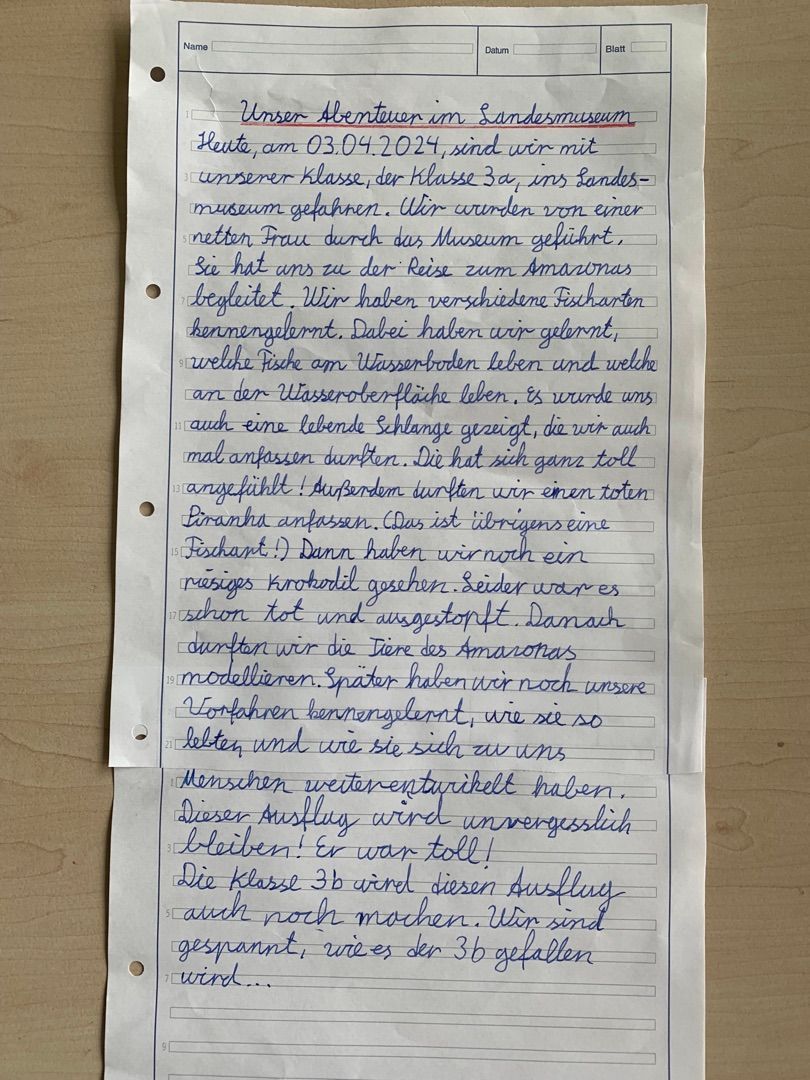 Name Datum Blatt
1 Unser Abenteuer im Landesmuseum
Heute, am 03.04.2024, sind wir mit
3 unserer Klasse, der Klasse 3a, ins Landes-
museum gefahren. Wir wurden von einer
5 netten Frau durch das Museum geführt.
Sie hat uns zu der Reise zum Amazonas
7 begleitet. Wir haben verschiedene Fischarten
kennengelernt. Dabei haben wir gelernt,
9 welche Fische am Wasserboden leben und welche
an der Wasseroberfläche leben. Es wurde uns
11 auch eine lebende Schlange gezeigt, die wir auch
mal anfassen durften. Die hat sich ganz toll
13 angefühlt! Außerdem durften wir einen toten
Piranha anfassen. (Das ist übrigens eine
15 Fischart!) Dann haben wir noch ein
riesiges Krokodil gesehen. Leider war es
17 schon tot und ausgestopft. Danach
durften wir die Tiere des Amazonas
19 modellieren. Später haben wir noch unsere
Vorfahren kennengelernt, wie sie so
21 lebten, und wie sie sich zu uns
1 Menschen weiterentwickelt haben.
Dieser Ausflug wird unvergesslich
3 bleiben! Er war toll!
Die Klasse 3b wird diesen Ausflug
5 auch noch machen. Wir sind
gespannt, wie es der 3b gefallen
7 wird...
9